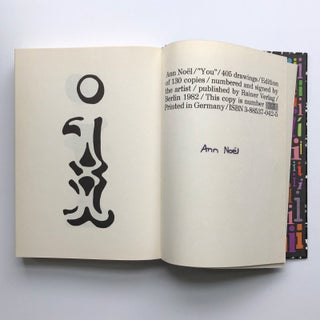 Ann Noël/"You"/405 drawings/Edition
of 130 copies/numbered and signed by
the artist/published by Rainer Verlag/
Berlin 1982/This copy is number
Printed in Germany/ISBN 3-88537-042-5
Ann Noël